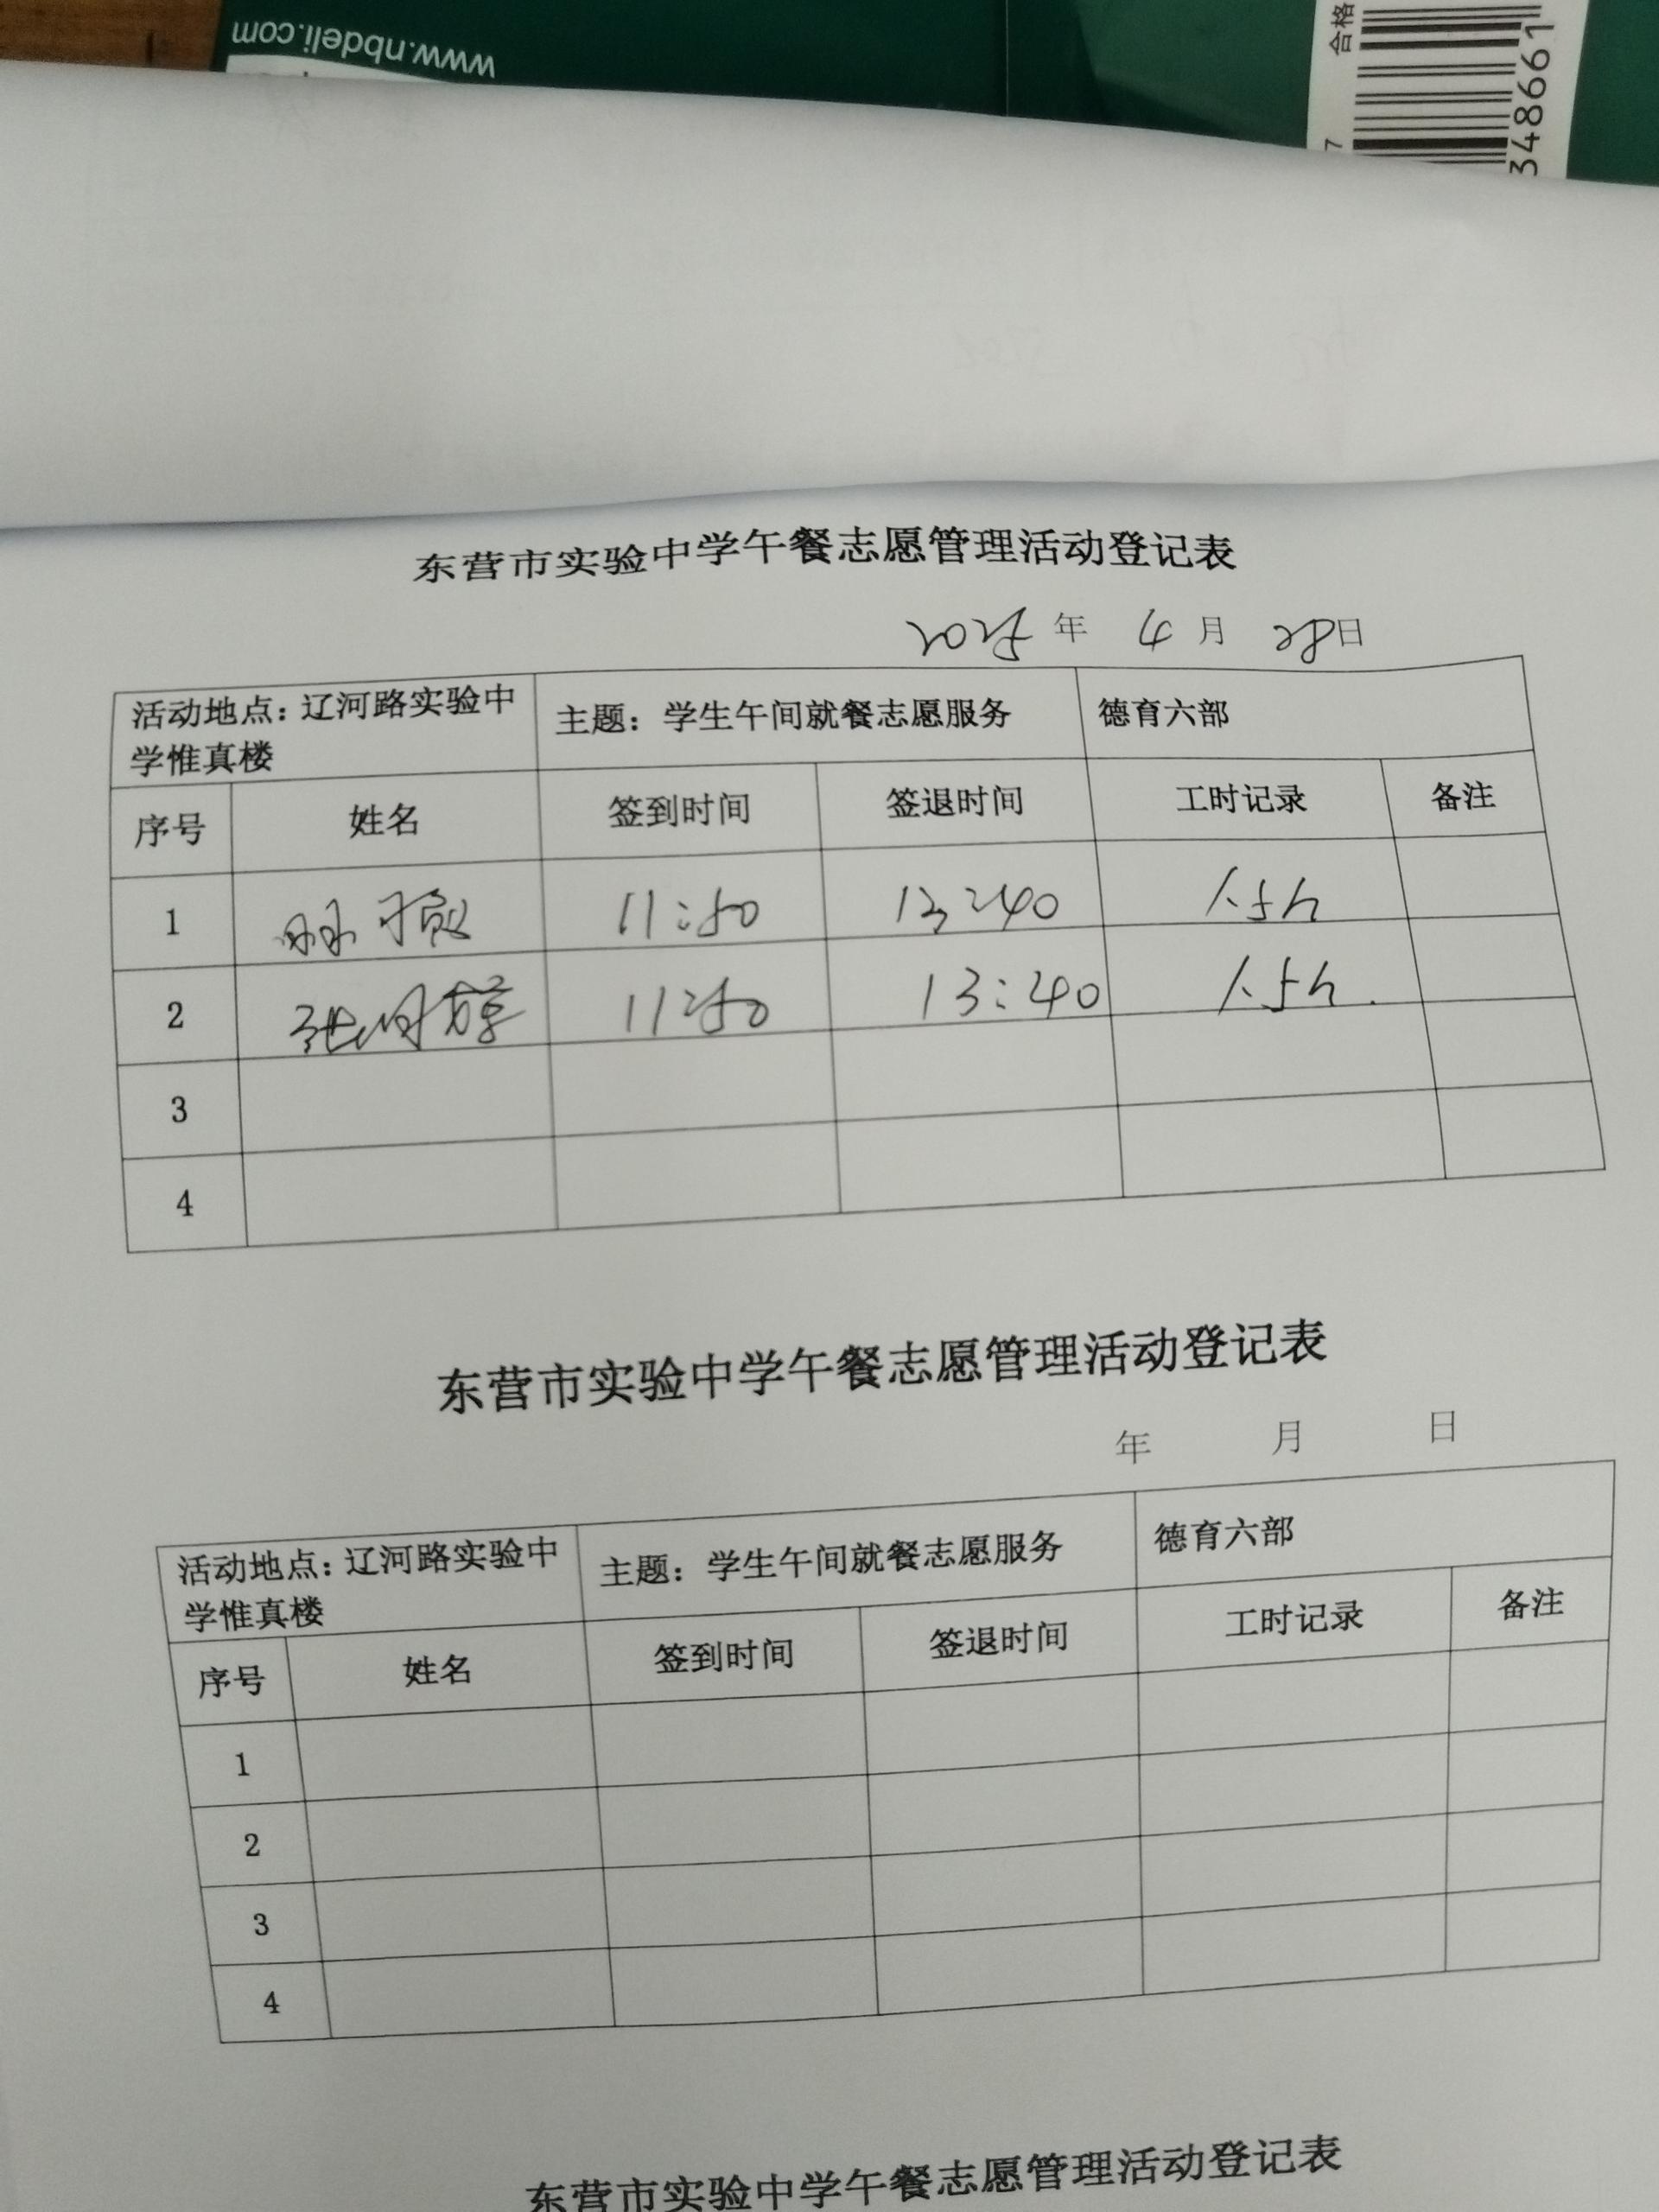 www.nbdeli.com
合格
348661
7
东营市实验中学午餐志愿管理活动登记表
年 4 月 28日
活动地点：辽河路实验中学惟真楼 主题：学生午间就餐志愿服务 德育六部
序号 姓名 签到时间 签退时间 工时记录 备注
1 11:50 13:40 1.5h
2 11:50 13:40 1.5h.
3
4
东营市实验中学午餐志愿管理活动登记表
年 月 日
活动地点：辽河路实验中学惟真楼 主题：学生午间就餐志愿服务 德育六部
序号 姓名 签到时间 签退时间 工时记录 备注
1
2
3
4
东营市实验中学午餐志愿管理活动登记表